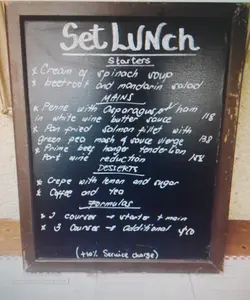 Set LUNch
Starters
* Cream of spinach soup
* beetroot and mandarin salad
MAINS
* Penne with Asparagus of ham
in white wine butter sauce
* Pan fried salmon fillet with
green pea mash & sauce vierge
* Prime beef hanger tenderloin
Port wine reduction
DESSERTS
* Crepe with lemon and sugar
* Coffee and tea
Formulas
* 2 courses → starter + main
* 3 courses → additional
(+10% Service charge)